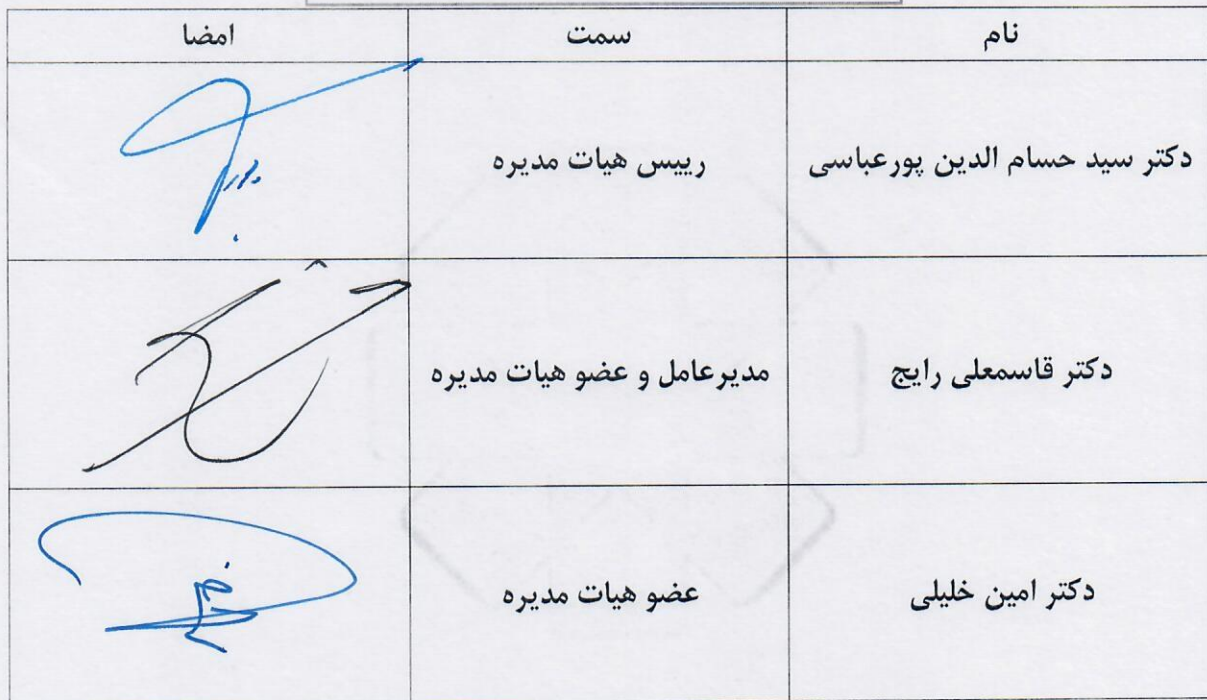 نام سمت امضا
دکتر سید حسام الدین پورعباسی رییس هیات مدیره
دکتر قاسمعلی رایج مدیرعامل و عضو هیات مدیره
دکتر امین خلیلی عضو هیات مدیره